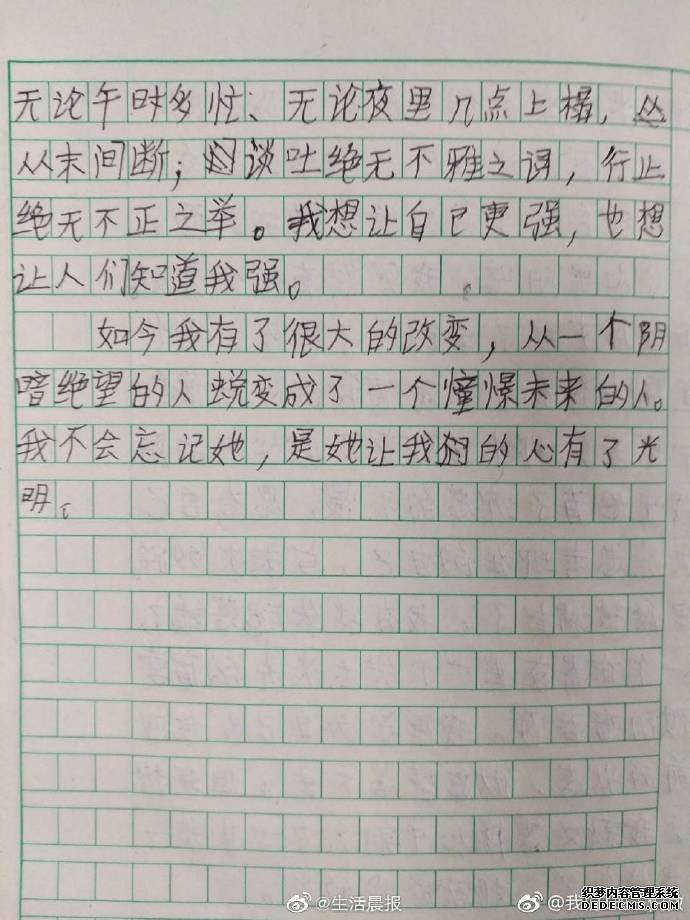 无论午时多忙、无论夜里几点上榻，
从未间断；谈吐绝无不雅之词，行止
绝无不正之举。我想让自己更强，也想
让人们知道我强。
如今我有了很大的改变，从一个阴
暗绝望的人蜕变成了一个憧憬未来的人。
我不会忘记她，是她让我的心有了光
明。
@生活晨报
@我
织梦内容管理系统
DEDECMS.COM